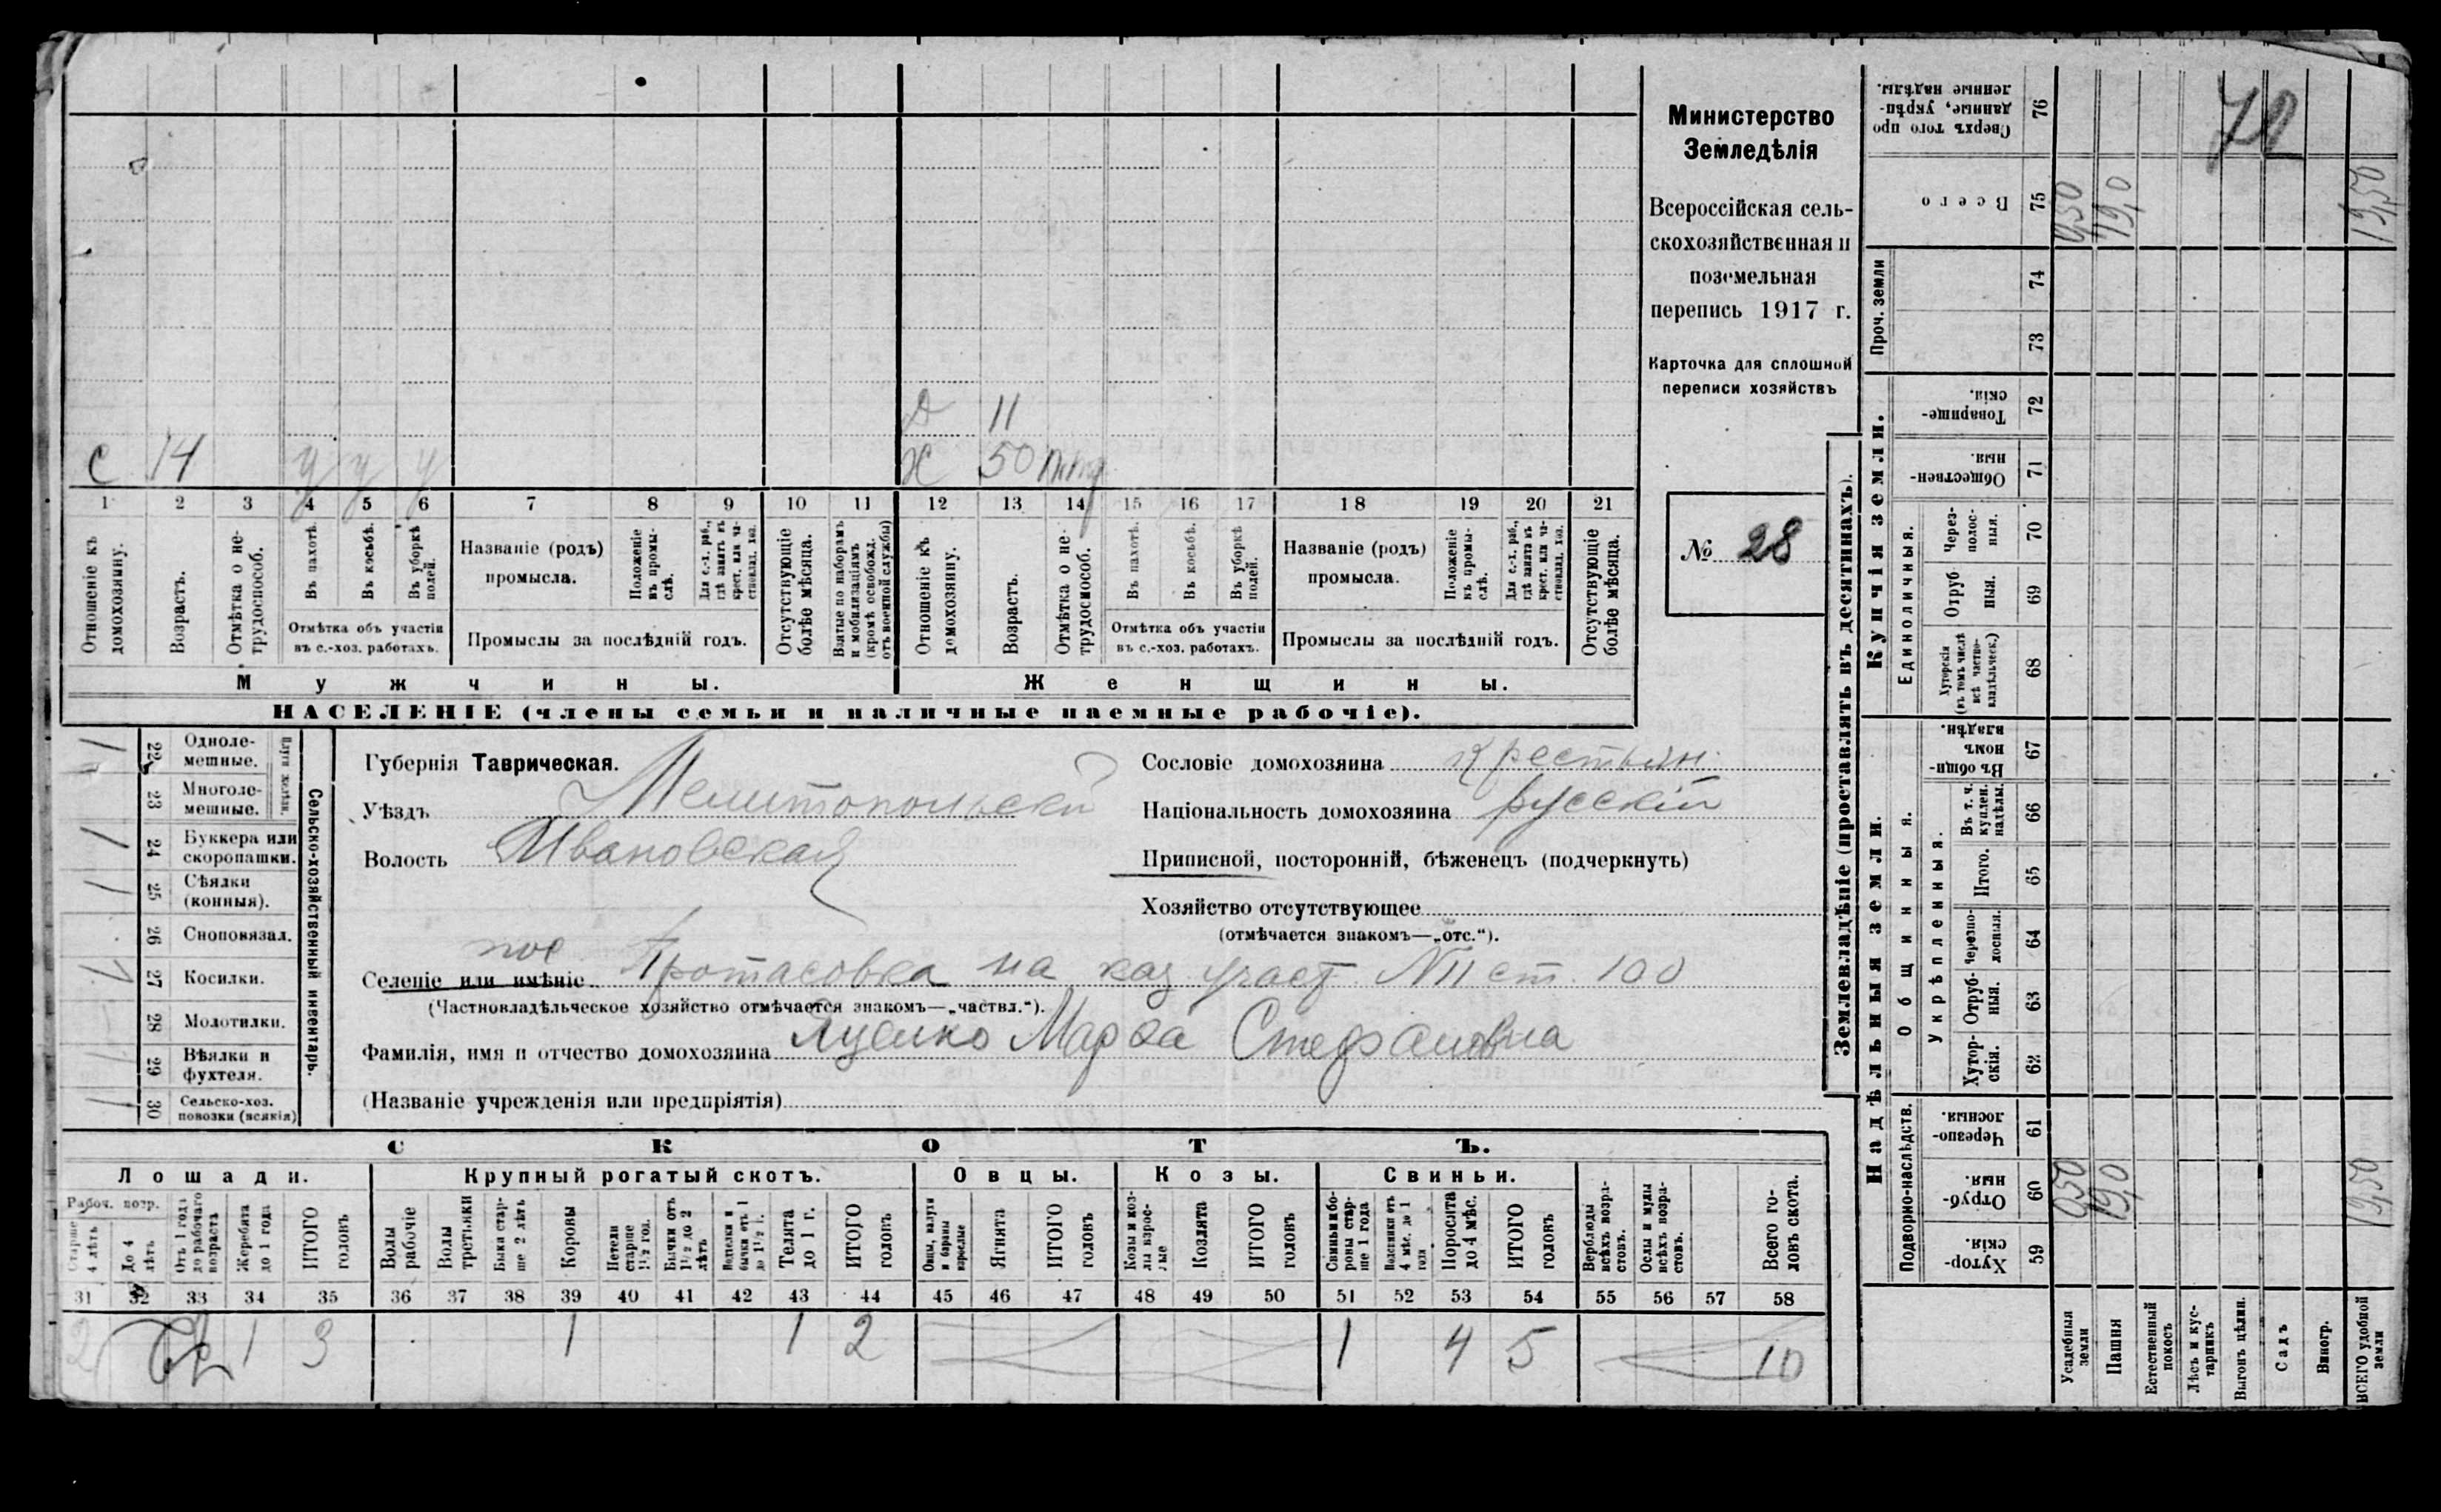 с 14 у у у
д 11
х 50
1 2 3 4 5 6 7 8 9 10 11 12 13 14 15 16 17 18 19 20 21
Отношеніе къ домохозяину.
Возрастъ.
Отмѣтка о нетрудоспособ.
Въ пахотѣ.
Въ косьбѣ.
Въ уборкѣ полей.
Отмѣтка объ участіи
въ с.-хоз. работахъ.
Названіе (родъ)
промысла.
Положеніе въ промыслѣ.
Для с.-х. раб., гдѣ занятъ въ крест. или частновлад. хоз.
Промыслы за послѣдній годъ.
Отсутствующіе болѣе мѣсяца.
Взятые по наборамъ и мобилизаціямъ (кромѣ освобожд. отъ военной службы)
Отношеніе къ домохозяину.
Возрастъ.
Отмѣтка о нетрудоспособ.
Въ пахотѣ.
Въ косьбѣ.
Въ уборкѣ полей.
Отмѣтка объ участіи
въ с.-хоз. работахъ.
Названіе (родъ)
промысла.
Положеніе въ промыслѣ.
Для с.-х. раб., гдѣ занята въ крест. или частновлад. хоз.
Промыслы за послѣдній годъ.
Отсутствующіе болѣе мѣсяца.
Мужчины.
Женщины.
НАСЕЛЕНІЕ (члены семьи и наличные наемные рабочіе).
Министерство
Земледѣлія
Всероссійская сель-
скохозяйственная и
поземельная
перепись 1917 г.
Карточка для сплошной
переписи хозяйствъ
№ 28
22 Одноле-
мешные.
23 Многоле-
мешные.
24 Буккера или
скоропашки.
25 Сѣялки
(конныя).
26 Сноповязал.
27 Косилки.
28 Молотилки.
29 Вѣялки и
фухтеля.
30 Сельско-хоз.
повозки (всякія)
Сельско-хозяйственный инвентарь.
Губернія Таврическая.
Уѣздъ Мелитопольскій
Волость Ивановская
пос
Селеніе или имѣніе Протасовка на каз участ. NII ст. 100
(Частновладѣльческое хозяйство отмѣчается знакомъ—„частвл.“).
Фамилія, имя и отчество домохозяина Яценко Марфа Стефановна
(Названіе учрежденія или предпріятія)
Сословіе домохозяина крестьян.
Національность домохозяина русскій
Приписной, посторонній, бѣженецъ (подчеркнуть)
Хозяйство отсутствующее
(отмѣчается знакомъ—„отс.“).
СКОТЪ.
Лошади. Крупный рогатый скотъ. Овцы. Козы. Свиньи.
Рабоч. возр.
Старше 4 лѣтъ
До 4 лѣтъ
Отъ 1 года до рабочаго возраста
Жеребята до 1 года
ИТОГО головъ
Волы рабочіе
Волы третьяки
Быки старше 2 лѣтъ
Коровы
Нетели старше 1½ год.
Бычки отъ 1½ до 2 лѣтъ
Телята до 1 г.
ИТОГО головъ
Овцы, валухи и бараны взрослые
Ягнята
ИТОГО головъ
Козы и козлы взрослые
Козлята
ИТОГО головъ
Свиньи и бороны старше 1 года
Подсвинки отъ 4 мѣс. до 1 года
Поросята до 4 мѣс.
ИТОГО головъ
Верблюды всѣхъ возрастовъ.
Ослы и мулы всѣхъ возрастовъ.
Всего головъ скота.
31 32 33 34 35 36 37 38 39 40 41 42 43 44 45 46 47 48 49 50 51 52 53 54 55 56 57 58
2 1 3 1 1 2 1 4 5 10
Землевладѣніе (проставлять въ десятинахъ).
Сверхъ того проданные, укрѣпленные надѣлы. 76
72
Всего 75 0,50 19,0 19,50
Проч. земли 74 73
Купчія земли.
Товарищескія. 72
Общественныя. 71
Единоличныя.
Черезполосныя. 70
Отрубныя. 69
Хуторскія (въ томъ числѣ всѣ частновладѣльческ.) 68
Надѣльныя земли.
Общинныя.
Въ общинномъ владѣн. 67
Укрѣпленныя.
Въ т. ч. куплен. надѣлы. 66
Итого. 65
Черезполосныя. 64
Отрубныя. 63
Хуторскія. 62
Подворно-наслѣдств.
Черезполосныя. 61
Отрубныя. 60 0,50 19,0 19,50
Хуторскія. 59
Усадебныя земли
Пашня
Естественный покосъ
Лѣсъ и кустарникъ
Выгонъ цѣлин.
Садъ
Виногр.
ВСЕГО удобной земли